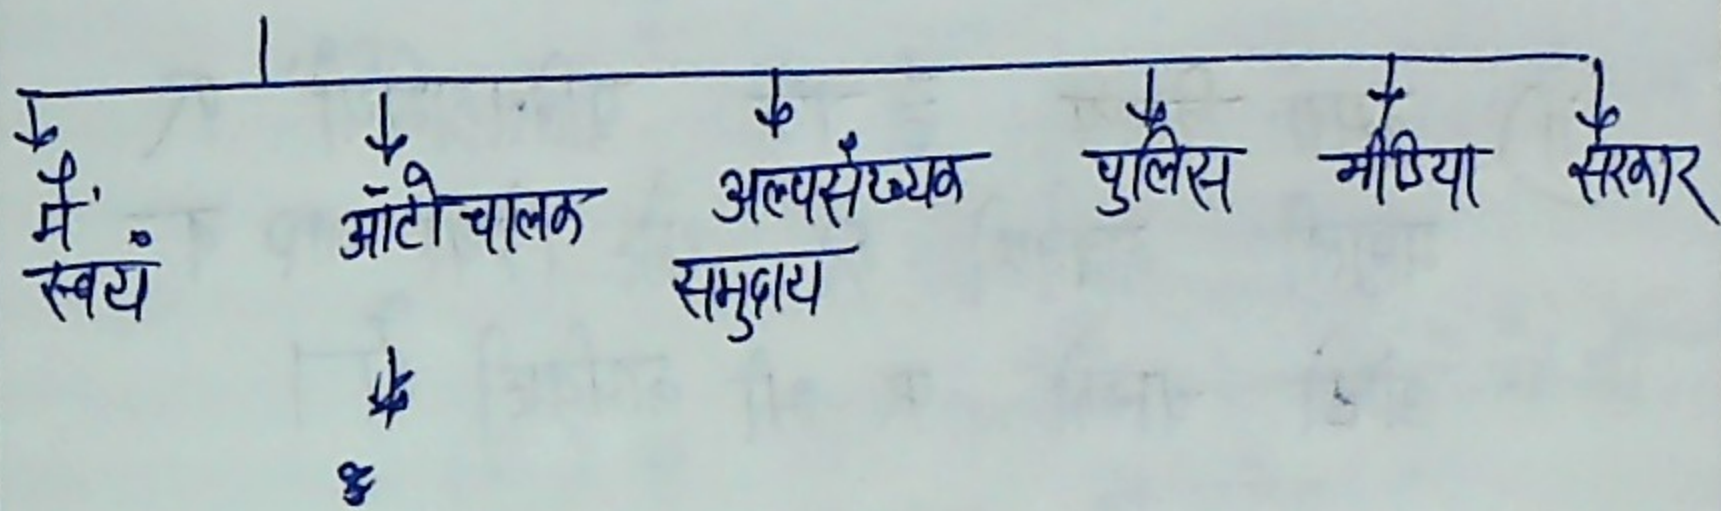 मैं स्वयं
ऑटो चालक
अल्पसंख्यक समुदाय
पुलिस
मीडिया
सरकार